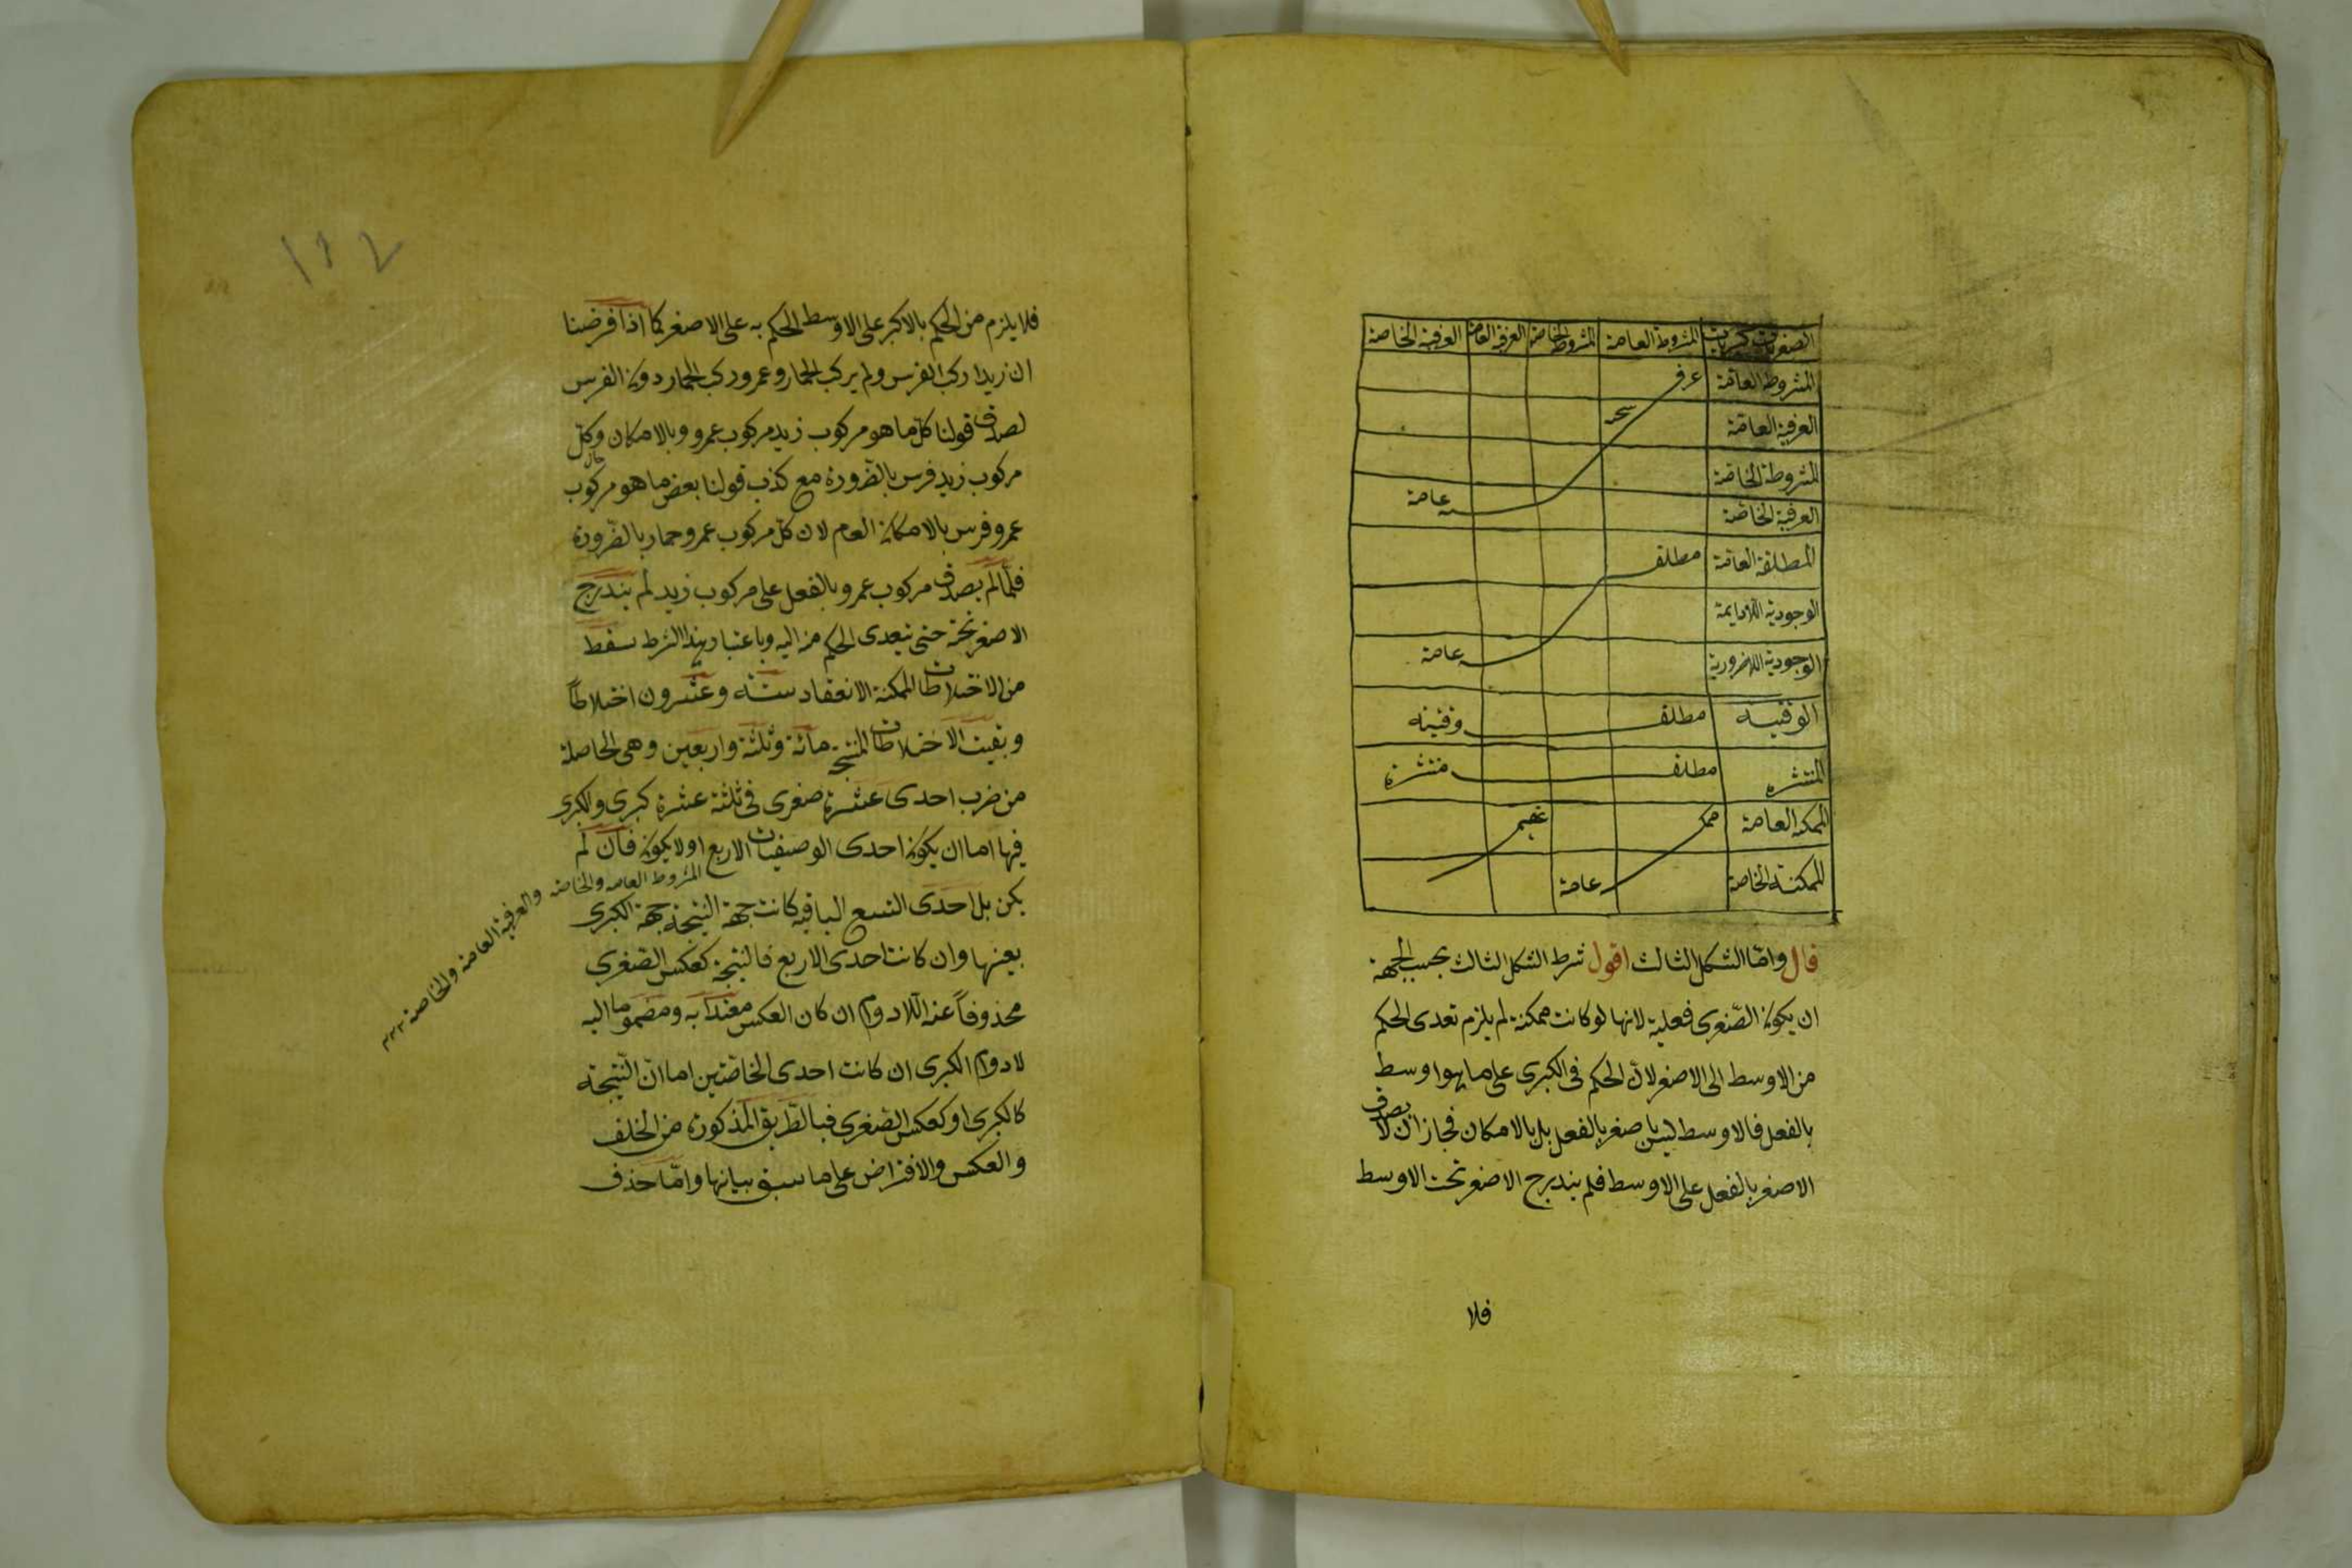 المشروطة العامة المشروطة الخاصة العرفية العامة العرفية الخاصة
المشروطة العامّة
العرفية العامّة
المشروطة الخاصّة
العرفية الخاصّة عامة
المطلقة العامّة مطلقه
الوجودية اللادايمة
الوجودية اللاضرورية عامة
الوقتيه مطلقه وقتيه
المنتشره مطلقه منتشره
الممكنه العامة
الممكنة الخاصة عامة
قال وامّا الشكل الثالث اقول شرط الشكل الثالث بحسب الجهة
ان يكون الصّغرى فعلية لانها لو كانت ممكنة لم يلزم تعدى الحكم
من الاوسط الى الاصغر لان الحكم فى الكبرى على ما هو اوسط
بالفعل فالاوسط ليس باصغر بالفعل بل بالامكان فجاز ان لا يصدق
الاصغر بالفعل على الاوسط فلم يندرج الاصغر تحت الاوسط
فلا
١١٢
فلا يلزم من الحكم بالاكبر على الاوسط الحكم به على الاصغر كما اذا فرضنا
ان زيدا ركب الفرس ولم يركب الحمار وعمرو ركب الحمار دون الفرس
لصدق قولنا كلّ ما هو مركوب زيد مركوب عمرو وبالامكان وكلّ
مركوب زيد فرس بالضّرورة مع كذب قولنا بعض ما هو مركوب
عمرو فرس بالامكان العام لان كلّ مركوب عمرو حمار بالضّرورة
فلمّا لم يصدق مركوب عمرو بالفعل على مركوب زيد لم يندرج
الاصغر تحته حتى يتعدى الحكم منه اليه وباعتبار هذا الشرط سقط
من الاختلاطات الممكنة الانعقاد ستّة وعشرون اختلاطاً
وبقيت الاختلاطات المنتجة مائة وثلثة واربعين وهى الحاصلة
من ضرب احدى عشرة صغرى فى ثلثة عشرة كبرى والكبرى
فيها اما ان يكون احدى الوصفيات الاربع او لا يكون فان لم
المشروط العامه والخاصه والعرفية العامة والخاصة
يكن بل احدى التسع الباقيه كانت جهة النتيجة جهة الكبرى
بعينها وان كانت احدى الاربع فالنتيجة كعكس الصّغرى
محذوفاً عنه اللادوام ان كان العكس مقيداً به ومضموما اليه
لادوام الكبرى ان كانت احدى الخاصّتين اما انّ النّتيجة
كالكبرى او كعكس الصّغرى فبالطّريق المذكورة من الخلف
والعكس والافتراض على ما سبق بيانها وامّا حذف